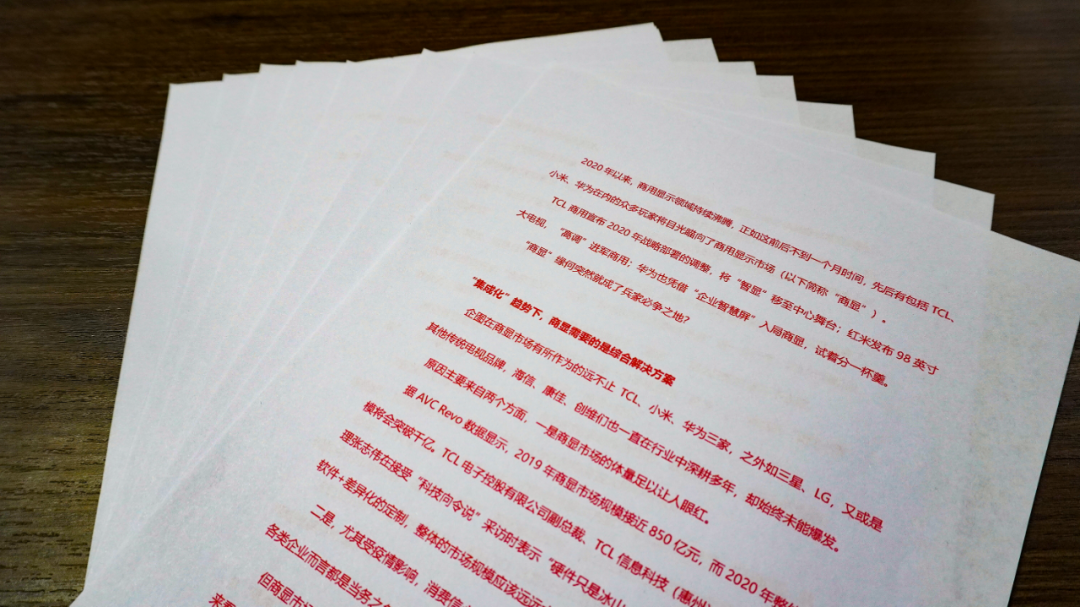 2020 年以来，商用显示领域持续沸腾，正如这前后不到一个月时间，先后有包括 TCL、
小米、华为在内的众多玩家将目光瞄向了商用显示市场（以下简称“商显”）。
TCL 商用宣布 2020 年战略部署的调整，将“智显”移至中心舞台；红米发布 98 英寸
大电视，“高调”进军商用；华为也凭借“企业智慧屏”入局商显，试着分一杯羹。
“商显”缘何突然就成了兵家必争之地？
“集成化”趋势下，商显需要的是综合解决方案
企图在商显市场有所作为的远不止 TCL、小米、华为三家，之外如三星、LG，又或是
其他传统电视品牌，海信、康佳、创维们也一直在行业中深耕多年，却始终未能爆发。
原因主要来自两个方面，一是商显市场的体量足以让人眼红。
据 AVC Revo 数据显示，2019 年商显市场规模接近 850 亿元，而 2020 年整体
模将会突破千亿。TCL 电子控股有限公司副总裁、TCL 信息科技（惠州）
理张志伟在接受“科技向令说”采访时表示“硬件只是冰山
软件+差异化的定制，整体的市场规模应该远远
二是，尤其受疫情影响，消费信
各类企业而言都是当务之
但商显市场